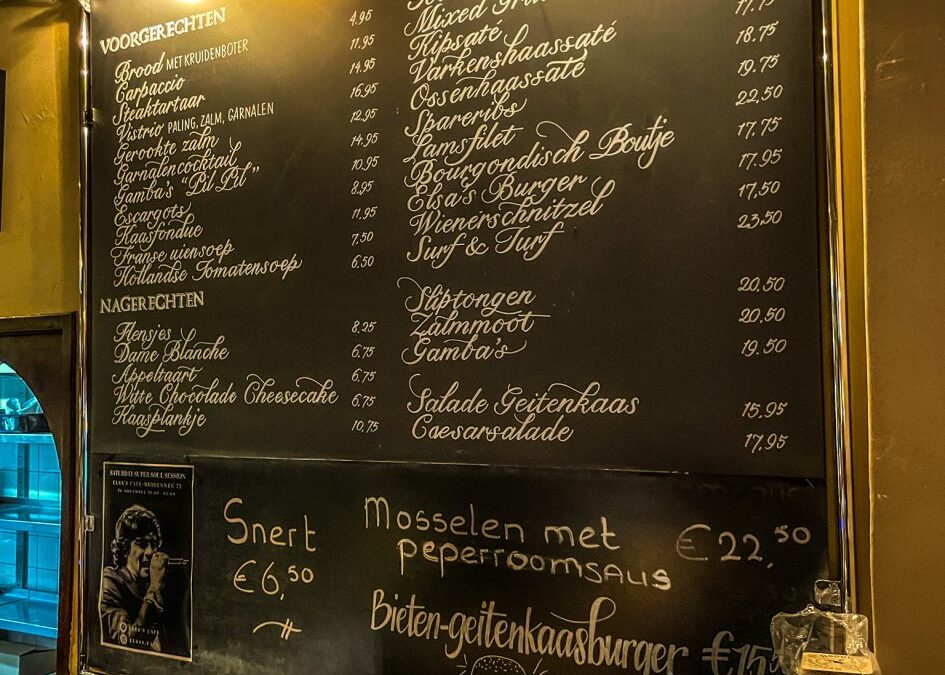 VOORGERECHTEN
Brood MET KRUIDENBOTER 4.95
Carpaccio 11.95
Steaktartaar 14.95
Vistrio PALING, ZALM, GARNALEN 16.95
Gerookte zalm 12.95
Garnalencocktail 14.95
Gamba's "Pil Pil" 10.95
Escargots 8.95
Kaasfondue 11.95
Franse uiensoep 7.50
Hollandse Tomatensoep 6.50
NAGERECHTEN
Flensjes 8.25
Dame Blanche 6.75
Appeltaart 6.75
Witte Chocolade Cheesecake 6.75
Kaasplankje 10.75
Mixed
Kipsaté
Varkenshaassaté 17.75
Ossenhaassaté 18.75
Spareribs 19.75
Lamsfilet 22,50
Bourgondisch Boutje 17.75
Elsa's Burger 17.95
Wienerschnitzel 17,50
Surf & Turf 23.50
Sliptongen 20,50
Zalmmoot 20.50
Gamba's 19.50
Salade Geitenkaas 15,95
Caesarsalade 17,95
SATURDAY SUPER SOUL SESSION
ELSA'S CAFE-MIDDENWEG 73
ELSA'S CAFE
Snert
€6,50
Mosselen met
peperroomsaus €22,50
Bieten-geitenkaasburger €15